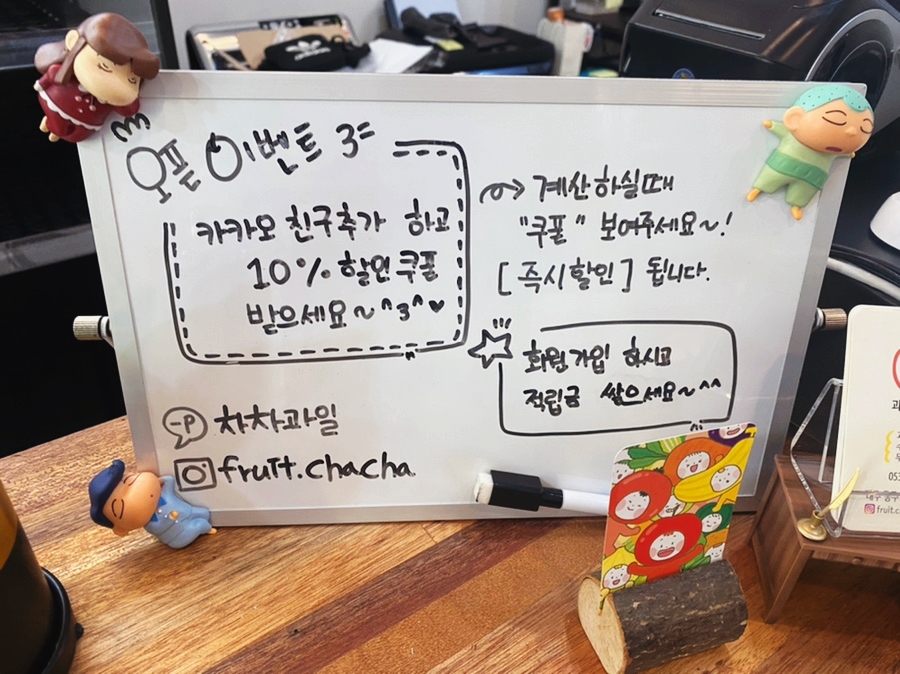 오픈 이벤트 3=
카카오 친구추가 하고
10% 할인쿠폰
받으세요~^3^♥
계산하실때
"쿠폰" 보여주세요~!
[즉시할인] 됩니다.
회원가입 하시고
적립금 쌓으세요~^^
-P 차차과일
fruit.chacha
053
fruit.c